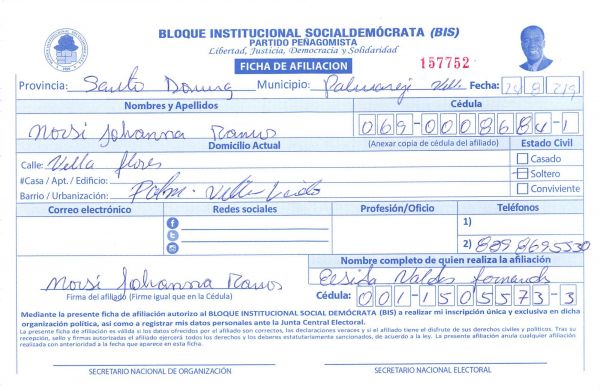 BLOQUE INSTITUCIONAL SOCIALDEMÓCRATA (BIS)
PARTIDO PEÑAGOMISTA
Libertad, Justicia, Democracia y Solidaridad
FICHA DE AFILIACION
157752
Provincia: Santo Doming Municipio: Palmarejo Villa Fecha:
Nombres y Apellidos Cédula
Norsi Johanna Ramos 069-0008684-1
Domicilio Actual (Anexar copia de cédula del afiliado) Estado Civil
Calle: Villa flores Casado
#Casa / Apt. / Edificio: Soltero
Barrio / Urbanización: Conviviente
Correo electrónico Redes sociales Profesión/Oficio Teléfonos
1)
2) 8298695530
Nombre completo de quien realiza la afiliación
Norsi Johanna Ramos Valdes
Firma del afiliado (Firme igual que en la Cédula) Cédula: 001-1505573-3
Mediante la presente ficha de afiliación autorizo al BLOQUE INSTITUCIONAL SOCIAL DEMÓCRATA (BIS) a realizar mi inscripción única y exclusiva en dicha
organización política, así como a registrar mis datos personales ante la Junta Central Electoral.
La presente ficha de afiliación es válida si los datos ofrecidos por el afiliado son correctos, las declaraciones veraces y si el afiliado tiene el disfrute de sus derechos civiles y políticos. Tras su
recepción, sello y firmas autorizadas el afiliado ejercerá todos los derechos y los deberes estatutariamente sancionados, de acuerdo a la ley. La presente afiliación anula cualquier afiliación
realizada con anterioridad a la fecha que aparece en esta ficha.
SECRETARIO NACIONAL DE ORGANIZACIÓN SECRETARIO NACIONAL ELECTORAL